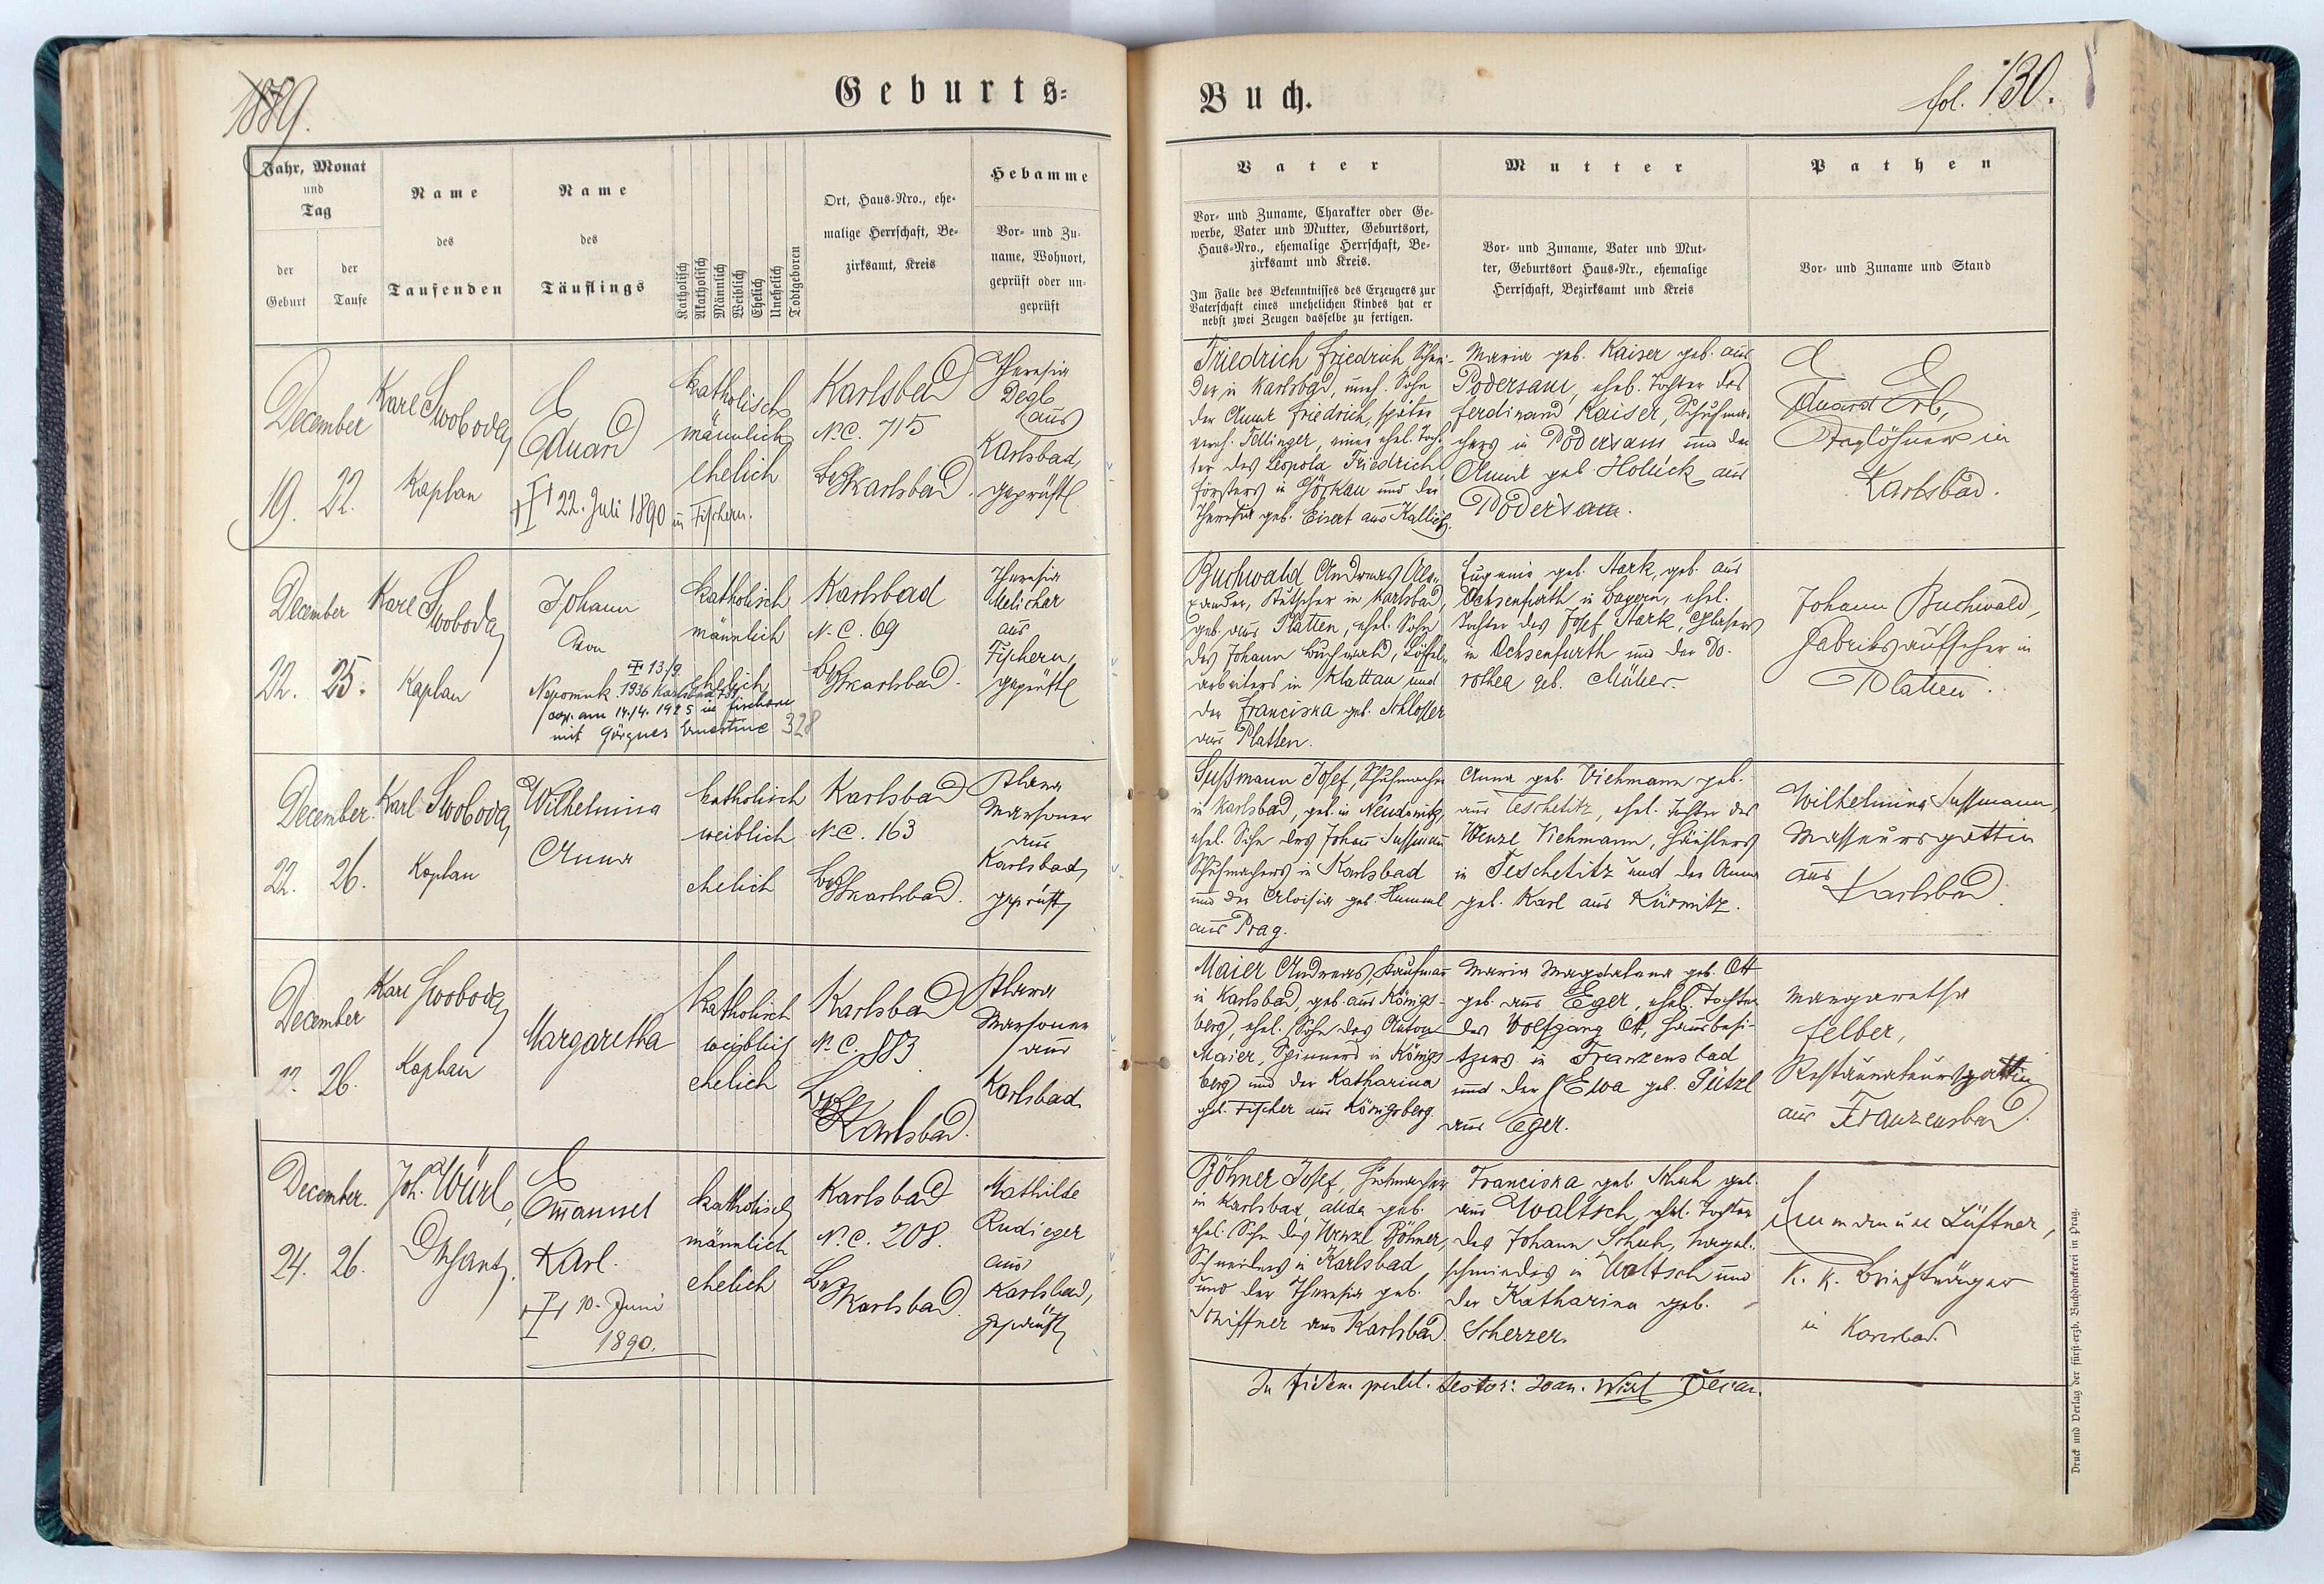 1889.
Geburts-
Jahr, Monat
und
Tag
der
Geburt
der
Taufe
Name
des
Taufenden
Name
des
Täuflings
Katholisch
Akatholisch
Männlich
Weiblich
Ehelich
Unehelich
Todtgeboren
Ort, Haus-Nro., ehe-
malige Herrschaft, Be-
zirksamt, Kreis
Hebamme
Vor- und Zu-
name, Wohnort,
geprüft oder un-
geprüft
December
19. 22.
Karl Swoboda
Kaplan
Eduard
22. Juli 1890 in Fischern.
katholisch
männlich
ehelich
Karlsbad
N.C. 715
Karlsbad.
Theresia
Degl
aus
Karlsbad,
geprüft
December
22. 25.
Karl Swoboda
Kaplan
Johann
von
Nepomuk
13./9.
1936 Karlsbad
cop. am 14./4. 1925 in Fischern
mit Görgner Ernestine 328
katholisch
männlich
ehelich
Karlsbad
N.C. 69
Karlsbad.
Theresia
Melichar
aus
Fischern,
geprüft
December.
22. 26.
Karl Swoboda
Kaplan
Wilhelmina
Anna
katholisch
weiblich
ehelich
Karlsbad
N.C. 163
Karlsbad.
Marsoner
aus
Karlsbad,
geprüft
December
22. 26.
Karl Swoboda
Kaplan
Margaretha
katholisch
weiblich
ehelich
Karlsbad
N.C. 883
Karlsbad.
Marsoner
aus
Karlsbad
December.
24. 26.
Joh. Würl,
Dechant.
Emanuel
Karl.
10. Juni
1890.
katholisch
männlich
ehelich
Karlsbad
N.C. 208.
Karlsbad.
Mathilde
Rudieger
aus
Karlsbad,
geprüft
Buch.
fol. 130.
Vater
Vor- und Zuname, Charakter oder Ge-
werbe, Vater und Mutter, Geburtsort,
Haus-Nro., ehemalige Herrschaft, Be-
zirksamt und Kreis.
Im Falle des Bekenntnisses des Erzeugers zur
Vaterschaft eines unehelichen Kindes hat er
nebst zwei Zeugen dasselbe zu fertigen.
Mutter
Vor- und Zuname, Vater und Mut-
ter, Geburtsort Haus-Nr., ehemalige
Herrschaft, Bezirksamt und Kreis
Pathen
Vor- und Zuname und Stand
Friedrich Friedrich
in Karlsbad, uneh. Sohn
der Anna Friedrich, später
verh. Tellinger, einer ehel. Toch-
ter des Leopold Friedrich
Försters in Görkau und der
Theresia geb. Eisert aus Kallich.
Maria geb. Kaiser geb. aus
Podersam, ehel. Tochter des
Ferdinand Kaiser, Schuhma-
chers in Podersam und der
Anna geb. Holick aus
Podersam.
Eduard Erb,
Taglöhner in
Karlsbad.
Buchwald Andreas Alex-
ander, Kutscher in Karlsbad,
geb. aus Platten, ehel. Sohn
des Johann Buchwald, Löffel-
arbeiters in Klattau und
der Franciska geb. Schlosser
aus Platten.
Eugenie geb. Stark, geb. aus
Ochsenfurth in Bayern, ehel.
Tochter des Josef Stark, Glasers
in Ochsenfurth und der Do-
rothea geb. Müller.
Johann Buchwald,
Fabriksaufseher in
Platten.
Sussmann Josef, Schuhmacher
in Karlsbad, geb. in
ehel. Sohn des Johann Sussmann
Schuhmachers in Karlsbad
und der Aloisia geb. Hummel
aus Prag.
Anna geb. Viehmann geb.
aus Teschetitz, ehel. Tochter des
Wenzl Viehmann, Häuslers
in Teschetitz und der Anna
geb. Karl aus
Wilhelmina Sussmann,
Masseursgattin
aus
Karlsbad.
Maier Andreas, Kaufmann
in Karlsbad, geb. aus Königs-
berg, ehel. Sohn des Anton
Maier, Spinners in Königs
berg und der Katharina
geb. Fischer aus Königsberg.
Maria Magdalena geb. Ott
geb. aus Eger, ehel. Tochter
des Wolfgang Ott, Hausbesi-
tzers in Franzensbad
und der Ewa geb. Pützl
aus Eger.
Margaretha
Felber,
Restaurateursgattin
aus Franzensbad.
Böhner Josef,
in Karlsbad, geb.
ehel. Sohn des Wenzl Böhner,
Schneiders in Karlsbad
und der Theresia geb.
Schiffner aus Karlsbad.
Franciska geb. Schuh geb.
aus Waltsch, ehel. Tochter
des Johann Schuh, Nagel-
schmiedes in Waltsch und
der Katharina geb.
Scherzer.
Lüftner,
k. k. Briefträger
in Karlsbad.
In fidem testor: Joan. Würl Decan.
Druck und Verlag der fürst-erzb. Buchdruckerei in Prag.